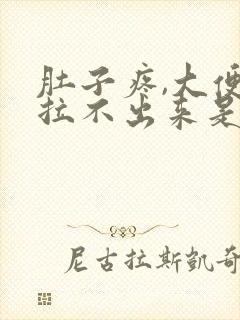 肚子疼,大便
拉不出来是
尼古拉斯凯奇